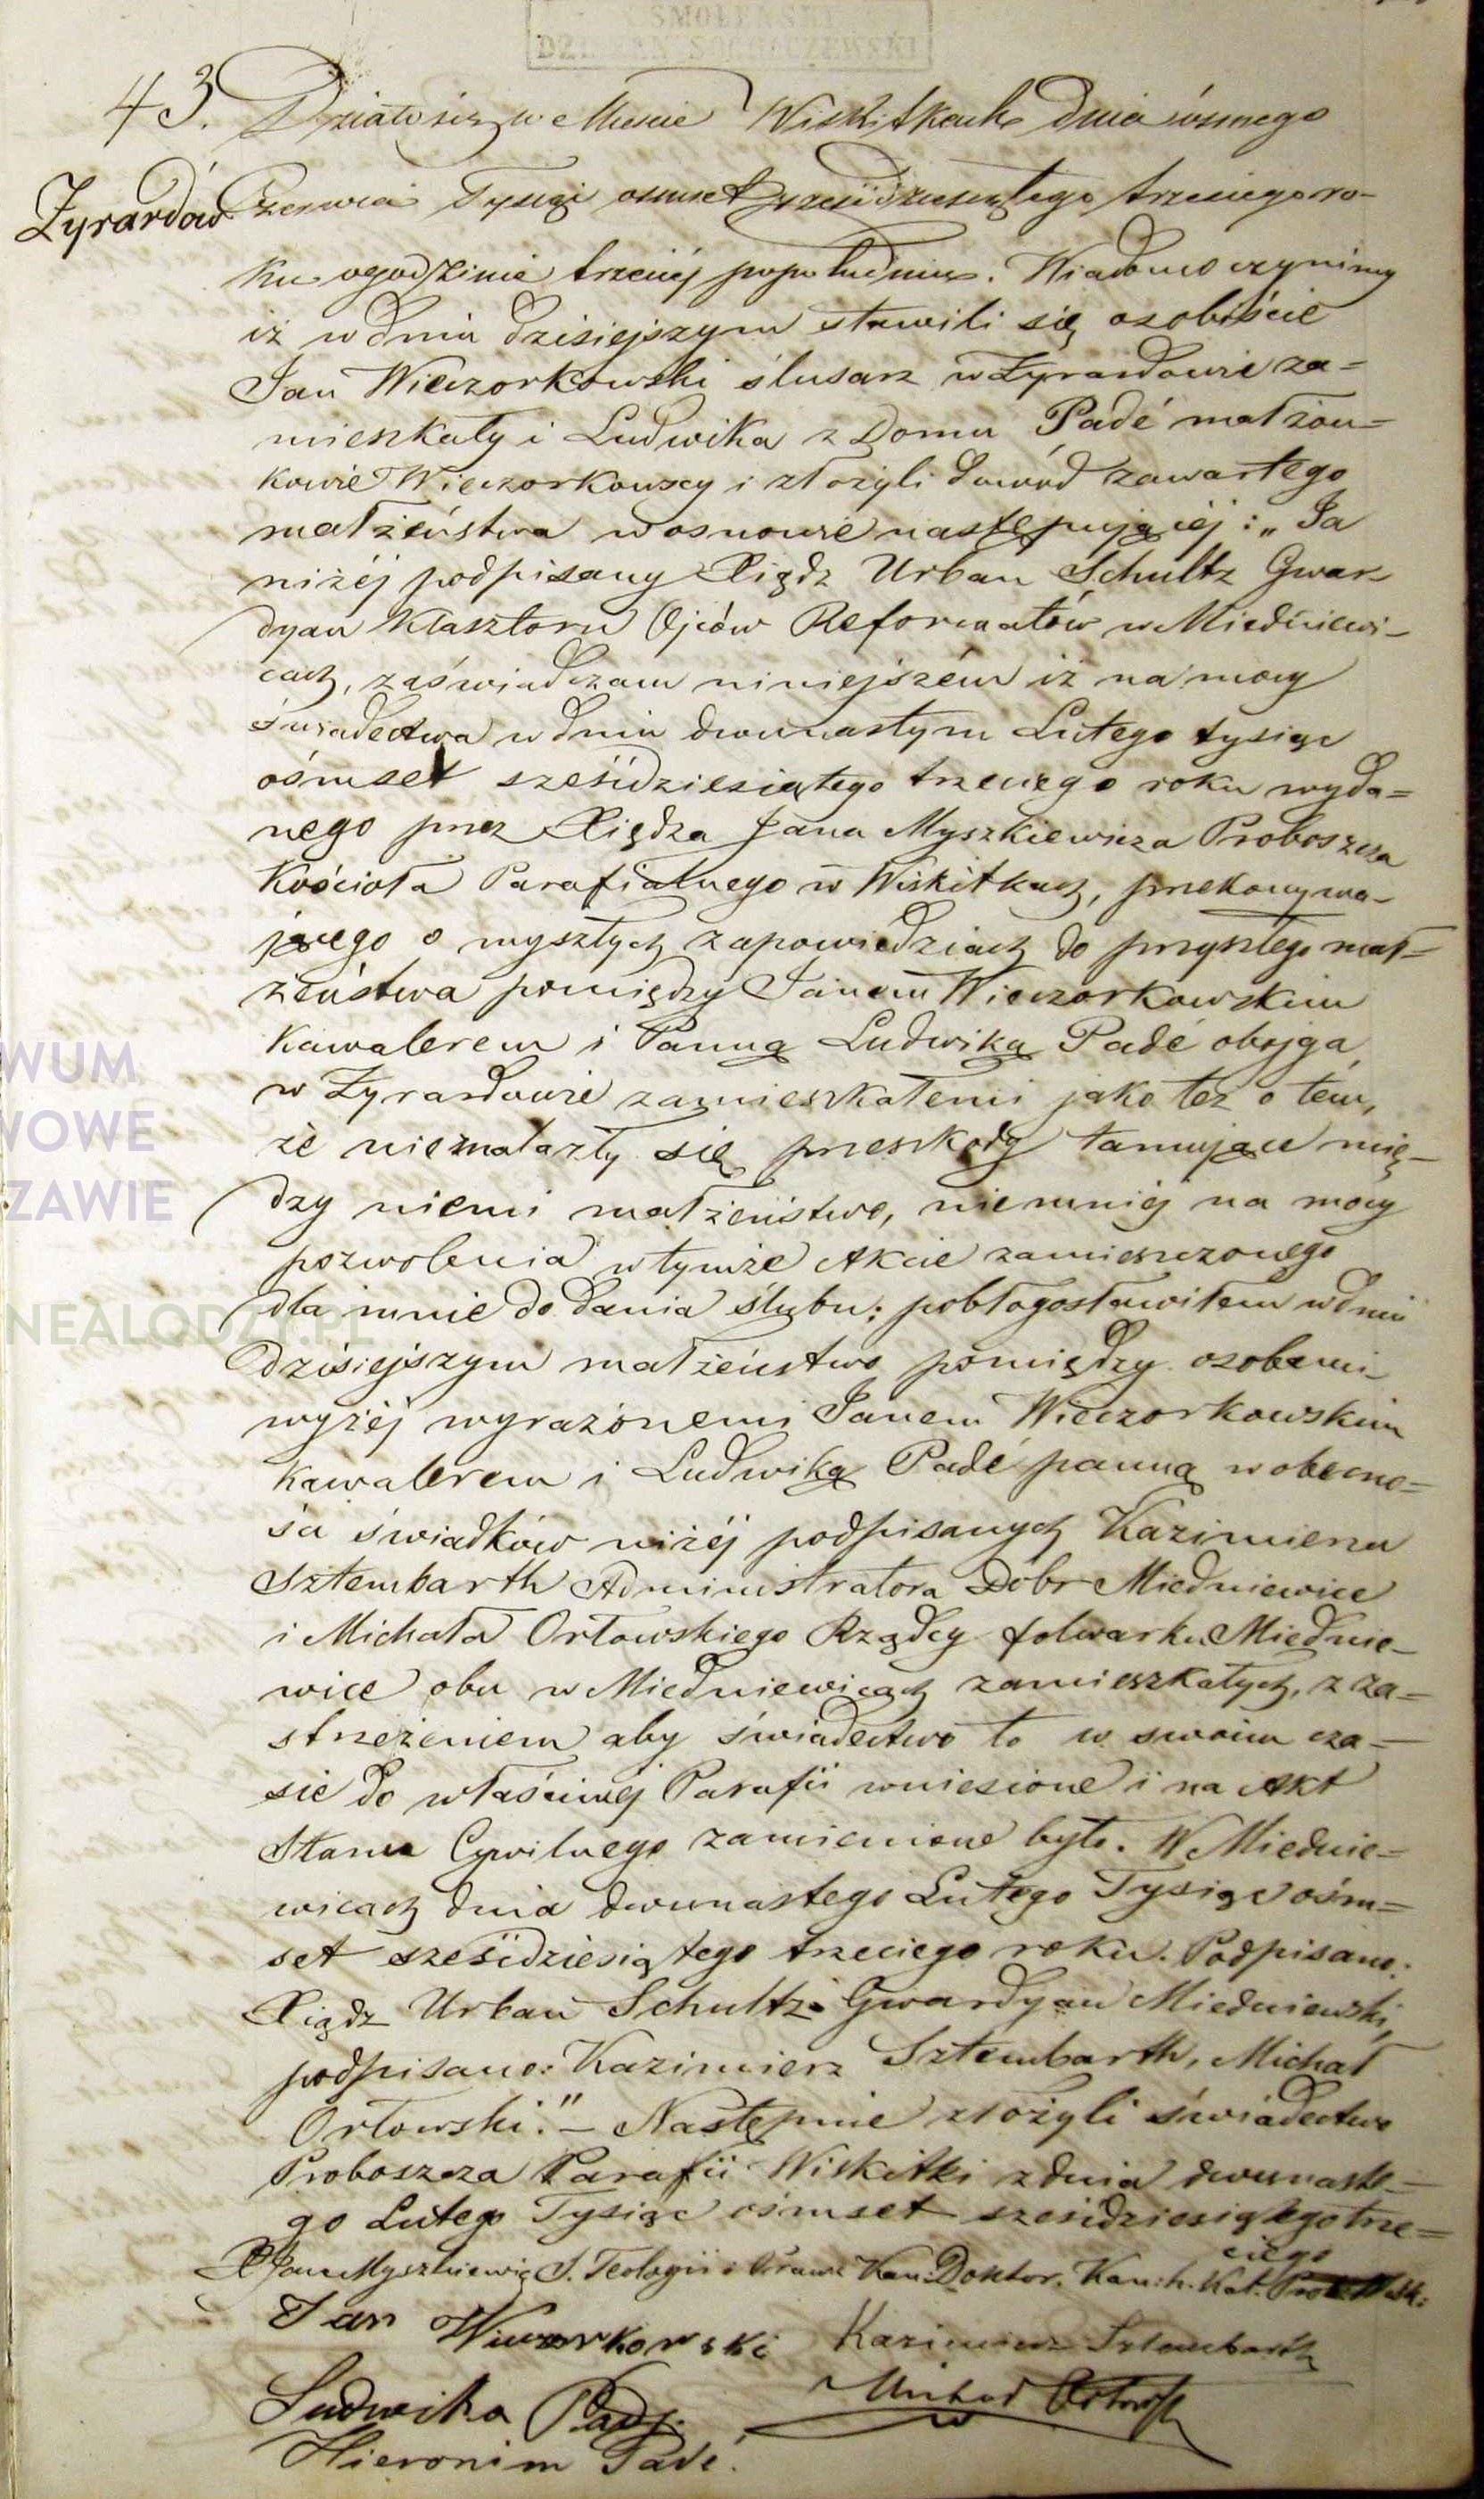 SMOLEŃSKI
DZIEKAN SOCHACZEWSKI
43. Działo się w Mieście Wiskitkach dnia ósmego
Żyrardów
Czerwca Tysiąc ośmset sześćdziesiątego trzeciego ro-
ku o godzinie trzeciéj popołudniu. Wiadomo czynimy
iż w dniu dzisiejszym stawili się osobiście
Jan Wieczorkowski ślusarz w Żyrardowie za=
mieszkały i Ludwika z Domu Padé małżon=
kowie Wieczorkowscy i złożyli dowód zawartego
małżeństwa w osnowie następującéj: „Ja
niżéj podpisany Xiądz Urban Schultz Gwar-
dyan Klasztoru Ojców Reformatów w Miedniewi-
cach, zaświadczam niniejszém iż na mocy
świadectwa w dniu dwunastym Lutego tysiąc
ośmset sześćdziesiątego trzeciego roku wyda=
nego przez Xiędza Jana Myszkiewicza Proboszcza
Kościoła Parafialnego w Wiskitkach, przekonywa-
jącego o wyszłych zapowiedziach do przyszłego mał=
żeństwa pomiędzy Janem Wieczorkowskim
Kawalerem i Panną Ludwiką Padé obojga
w Żyrardowie zamieszkałemi jako też o tém,
że nieznalazły się przeszkody tamujące mię-
dzy niemi małżeństwo, niemniéj na mocy
pozwolenia w tymże Akcie zamieszczonego
dla mnie do dania ślubu; pobłogosławiłem w dniu
dzisiejszym małżeństwo pomiędzy osobami
wyżéj wyrażonemi Janem Wieczorkowskim
Kawalerem i Ludwiką Padé panną w obecno=
ści świadków niżéj podpisanych Kazimierza
Sztembarth Administratora Dóbr Miedniewice
i Michała Orłowskiego Rządcy folwarku Miednie-
wice obu w Miedniewicach zamieszkałych, z za=
strzeżeniem aby świadectwo to w swoim cza-
sie do właściwéj Parafii wniesione i na Akt
Stanu Cywilnego zamienione było. W Miednie=
wicach dnia dwunastego Lutego Tysiąc ośm=
set sześćdziesiątego trzeciego roku. Podpisano:
Xiądz Urban Schultz Gwardyan Miedniewski,
podpisano: Kazimierz Sztembarth, Michał
Orłowski." – Następnie złożyli świadectwo
Proboszcza Parafii Wiskitki z dnia dwunaste-
go Lutego Tysiąc ośmset sześćdziesiątego trze=
ciego
X Jan Myszkiewicz S. Teologii i Prawa Kan: Doktor. Kan: h. Kat. Prob. Wisk:
Jan Wieczorkowski Kazimierz Sztembarth
Ludwika Padé Michał Orłowski
Hieronim Padé.
WUM
WOWE
ZAWIE
NEALODZY.PL